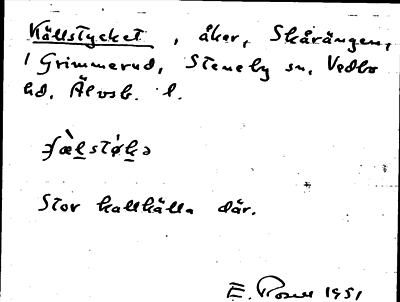 Källstycket, åker, Skårängen,
1 Grimmerud, Steneby sn, Vedbo
hd, Älvsb. l.
Stor kallkälla där.
E. 1951